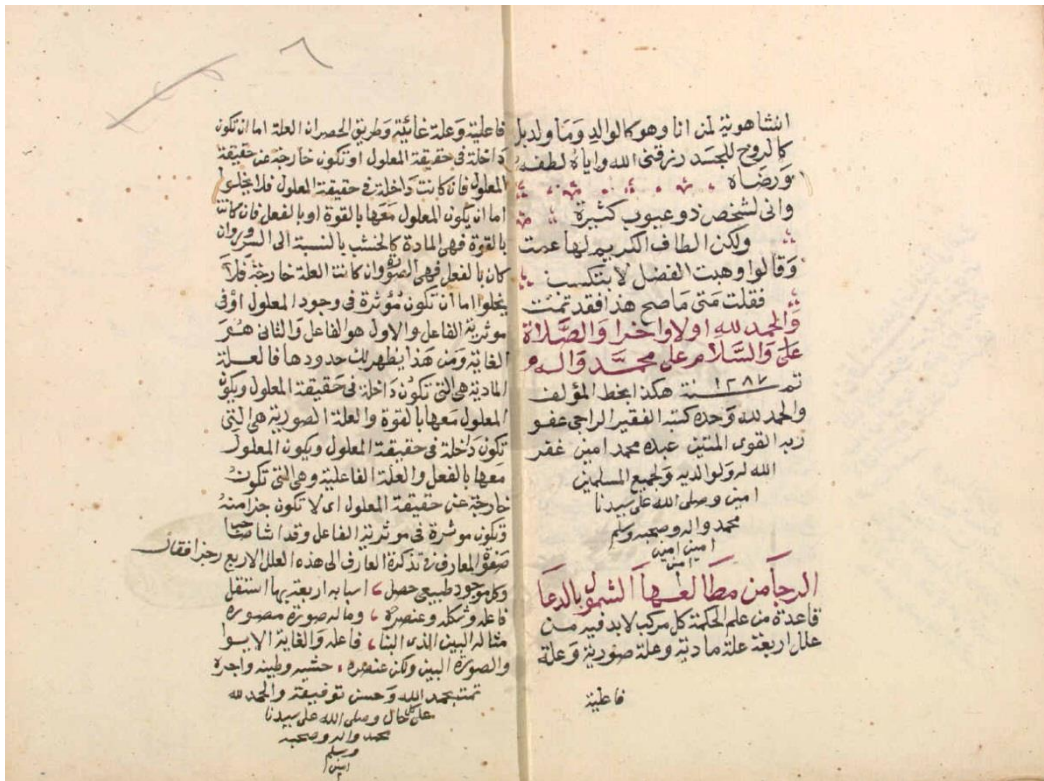 انشاهونية لمن انا وهو كالوالد وما ولد بل
كالروح للجسد رزقنى الله واياه لطفه
ورضاه
وانى لشخص ذو عيوب كثيرة
ولكن الطاف الكريم لها عمت
وقالوا وهبت الفضل لا بتكسب
فقلت متى ما صح هذا فقد تمت
والحمد لله اولا واخرا والصلاة
على والسلام على محمد واله و
تم سنة ١٢٨٧ هكذا بخط المؤلف
والحمد لله وحده كتبه الفقير الراجى عفو
ربه القوى المتين عبده محمد امين غفر
الله له ولوالديه ولجميع المسلمين
امين وصلى الله على سيدنا
محمد واله وصحبه وسلم
امين امين
امين
الرجا من مطالعها الشمول بالدعا
قاعدة من علم الحكمة كل مركب لابد فيه من
علل اربعة علة مادية وعلة صورية وعلة
فاعلية
٦
فاعلية وعلة غائية وطريق الحصران العلة اما ان تكون
داخلة فى حقيقة المعلول او تكون خارجة عن حقيقة
المعلول فان كانت داخلة فى حقيقة المعلول فلا يخلوا
اما ان يكون المعلول معها بالقوة او بالفعل فان كانت
بالقوة فهى المادة كالخشب بالنسبة الى السرير وان
كان بالفعل فهى الصورة وان كانت العلة خارجة فلا
يخلوا اما ان تكون مؤثرة فى وجود المعلول او فى
موثرية الفاعل والاول هو الفاعل والثانى هو
الغاية ومن هذا يظهر لك حدودها فالعلة
المادية هى التى تكون داخلة فى حقيقة المعلول ويكون
المعلول معها بالقوة والعلة الصورية هى التى
تكون داخلة فى حقيقة المعلول ويكون المعلول
معها بالفعل والعلة الفاعلية وهى التى تكون
خارجة عن حقيقة المعلول اى لا تكون جزا منه
وتكون موثرة فى موثرية الفاعل وقد اشا صاحب
صفو المعارف فى تذكرة العارف الى هذه العلل الاربع رجزا فقال
وكل موجود طبيعى حصل اسبابه اربعة بها استقل
فاعله وشكله وعنصره وماله صورة مصوره
مثاله البين الذى البنا فاعله والغاية الايوا
والصورة البين ولكن عنصره خشبه وطينه واجره
تمت بحمد الله وحسن توفيقه والحمد لله
على كل حال وصلى الله على سيدنا
محمد واله وصحبه
وسلم
امين